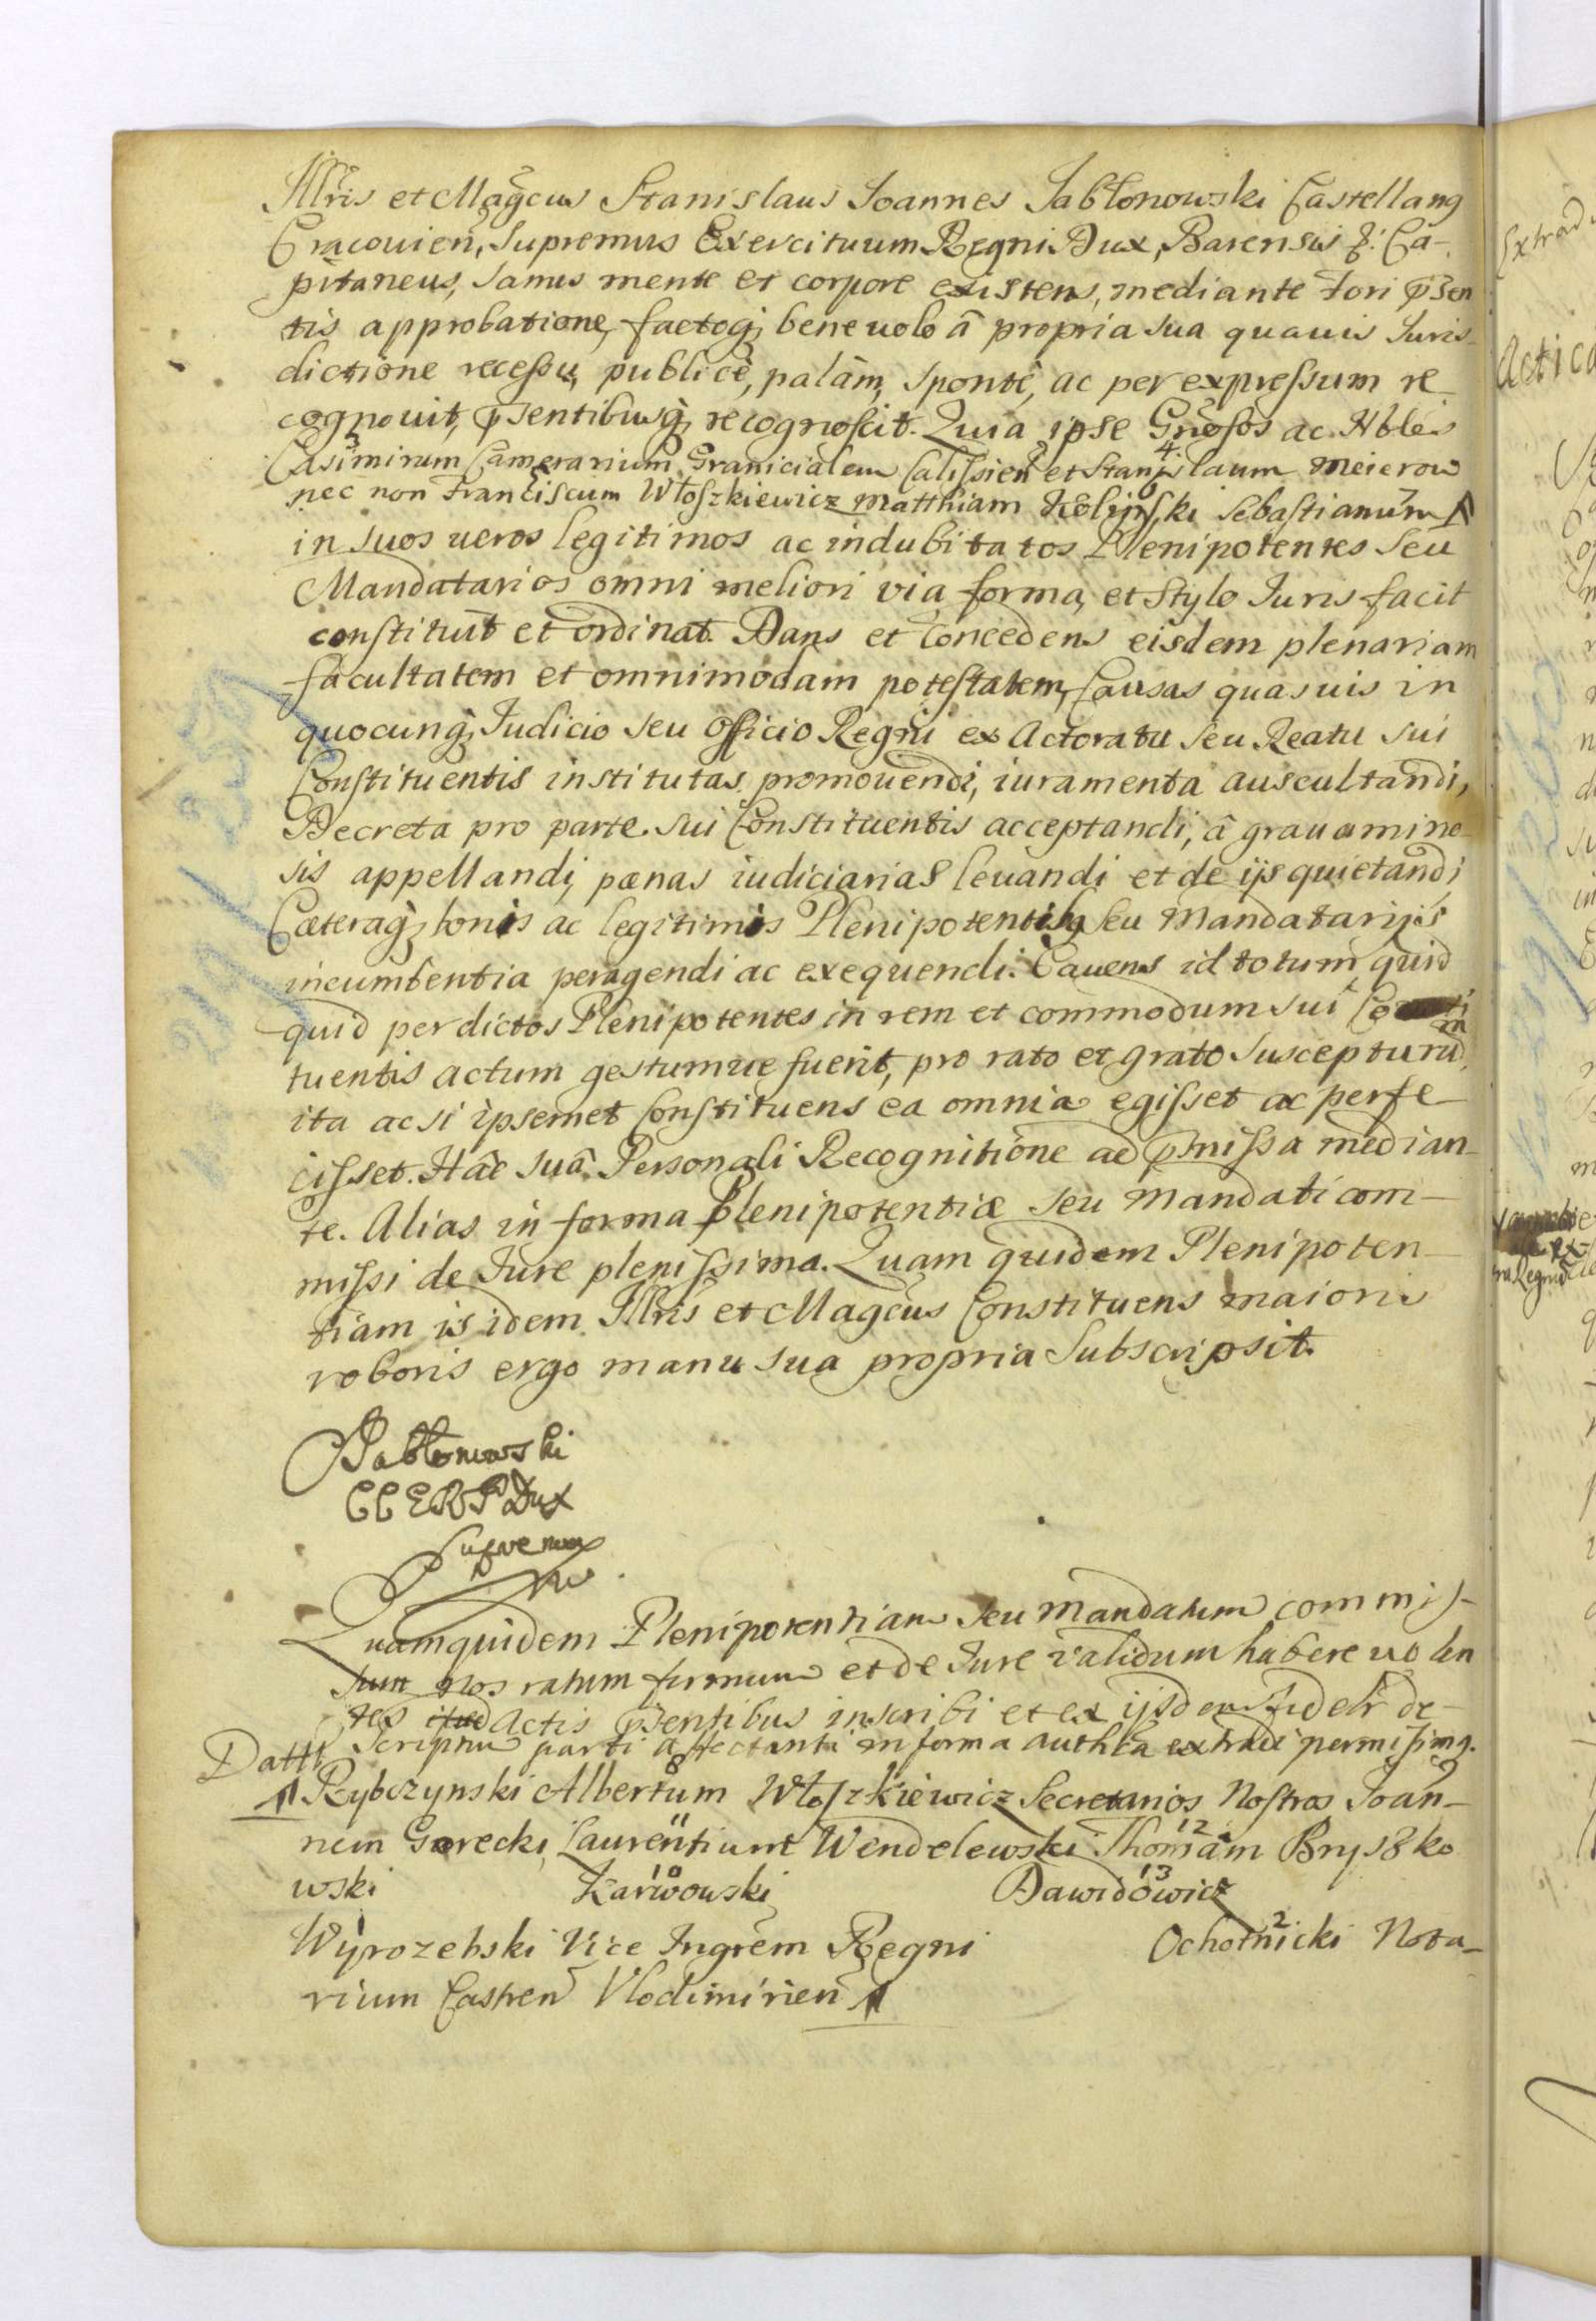 Illris et Magcus Stanislaus Ioannes Jabłonowski Castellang
Cracouien, Supremus Exercituum Regni Dux, Barensis &: Ca-
pitaneus, sanus mente et corpore existens, mediante Fori pSen
tis approbatione, factoq; beneuolo â propria sua quauis Iuris-
dictione recessu, publicè, palàm, spontè, ac per expressum re
cognouit, pSentibusq; recognoscit. Quia ipse Gnosos ac Nbles
Casimirum Camerarium Granicialem Calissien et Stanislaum Meierow
3 4
nec non Franciscum Włoszkiewicz Matthiam Kolinski Sebastianum
5 6 7
in suos ueros legitimos ac indubitatos Plenipotentes seu
Mandatarios omni meliori via forma, et Stylo Iuris facit
constituit et ordinat. Dans et Concedens eisdem plenariam
facultatem et omnimodam potestatem, Causas quasuis in
quocunq; Iudicio seu officio Regni ex Actoratu seu Reatu sui
Constituentis institutas promouendi, iuramenta auscultandi,
Decreta pro parte sui Constituentis acceptandi, â grauamino
sis appellandi, pænas iudiciarias leuandi et de ijs quietandi,
Cæteraq; bonis ac legitimis Plenipotentibq seu Mandatarijs
incumbentia peragendi ac exequendi. Cauens id totum quid
quid per dictos Plenipotentes in rem et commodum sui
tuentis actum gestumue fuerit, pro rato et grato suscepturum
ita ac si ipsemet Constituens ea omnia egisset ac perfe-
cisset. Hâc suâ Personali Recognitione ad pmissa median-
te. Alias in forma Plenipotentiæ seu Mandati com-
missi de Iure plenissima. Quam quidem Plenipoten-
tiam is idem Illris et Magcus Constituens maioris
roboris ergo manu sua propria Subscripsit.
Jabłonowski
CCERP Dux
Supremus
Quam quidem Plenipotentiam seu Mandatum commis-
sum nos ratum firmum et de Iure validum habere uolen
tes Actis pSentibus inscribi et ex ijsdem fideli de-
Scriptum parti affectanti in forma authca extradi permisimq.
Dattt
Rybczynski Albertum Włoszkiewicz Secretarios Nostros Ioan-
8 9
nem Gorecki Laurentium Wendelewski Thomam Bryszko
11 12
wski Karwowski Dawidowicz
10 13
Wyrozebski Vice Ingrem Regni Ochotnicki Nota-
1 2
rium Castren Vlodimirien